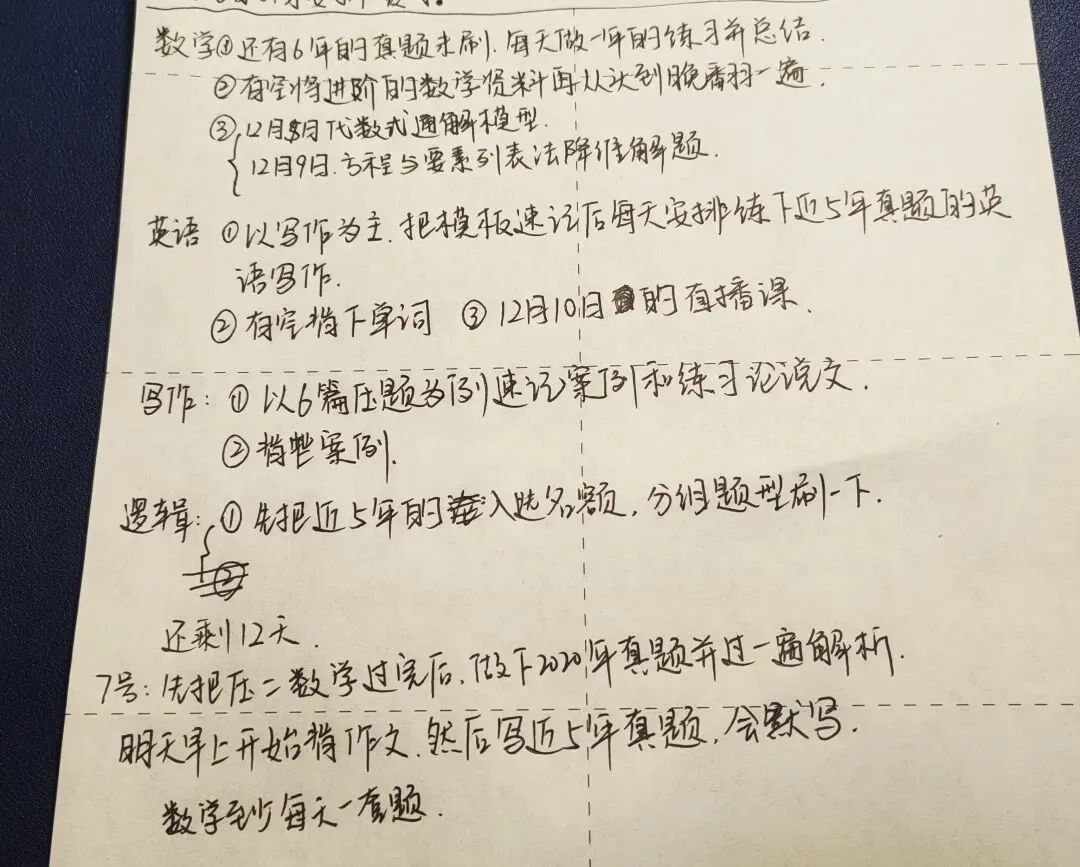 数学①还有6年的真题未刷.每天做一年的练习并总结.
②有空将进阶的数学资料再从头到晚看一遍.
③12月8日代数式通解模型.
12月9日.方程与要素列表法降维解题.
英语 ①以写作为主.把模板速记后每天安排练下近5年真题的英
语写作.
②有空背下单词 ③12月10日的直播课.
写作:①以6篇压题为例速记案例和练习论说文.
②背些案例.
逻辑:①先把近5年的入选名额,分组题型刷一下.
②
还剩12天.
7号:先把压二数学过完后,做下2020年真题并过一遍解析.
明天早上开始背作文.然后写近5年真题,会默写.
数学至少每天一套题.